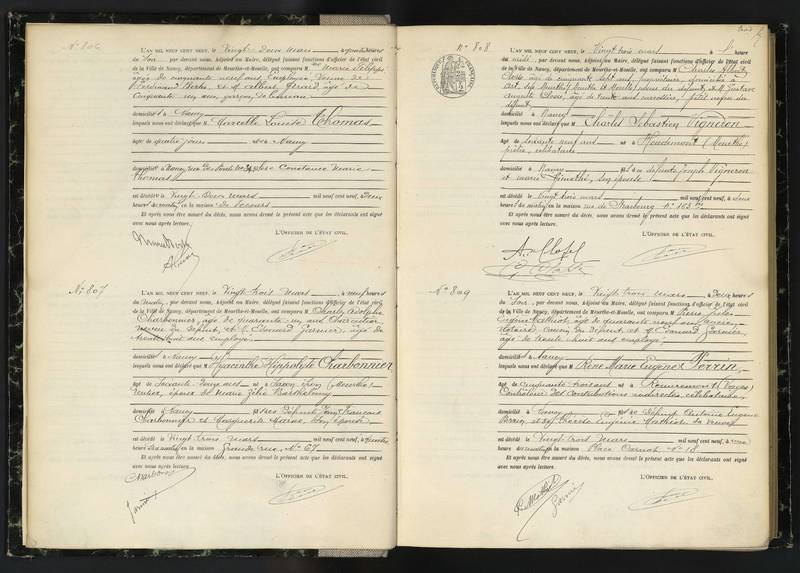 N° 806
L'AN MIL NEUF CENT NEUF, le Vingt-Deux Mars, à heures
du Soir, par devant nous, Adjoint au Maire, délégué faisant fonctions d'officier de l'état civil
de la Ville de Nancy, département de Meurthe-et-Moselle, ont comparu M
âgée de cinquante neuf ans, Employée, Veuve de
Ferdinand et M Albert Gérard, âgé de
cinquante un ans, garçon de bureau
domicilié à Nancy
lesquels nous ont déclaré que Marcelle Louise Thomas
âgé de quatre jours, né à Nancy
domicilié à Nancy, fille de Constance Marie
Thomas
est décédé le Vingt-Deux Mars mil neuf cent neuf, à Deux
heures du matin, en la maison De Secours
Et après nous être assuré du décès, nous avons dressé le présent acte que les déclarants ont signé
avec nous après lecture.
L'OFFICIER DE L'ÉTAT CIVIL,
N° 807
L'AN MIL NEUF CENT NEUF, le Vingt-trois Mars, à neuf heures
du Matin, par devant nous, Adjoint au Maire, délégué faisant fonctions d'officier de l'état civil
de la Ville de Nancy, département de Meurthe-et-Moselle, ont comparu M Charles Adolphe
Charbonnier, âgé de quarante un ans, Charcutier,
neveu du défunt, et M. Edouard Garnier, âgé de
trente huit ans, employé,
domicilié à Nancy
lesquels nous ont déclaré que Hyacinthe Hippolyte Charbonnier
âgé de Soixante Douze ans, né à Saxon Sion (Meurthe)
rentier, époux de Marie Zélie Barthelemy
domicilié à Nancy, fils de défunts François
Charbonnier et Marguerite son épouse
est décédé le Vingt-trois Mars mil neuf cent neuf, à quatre
heures du matin, en la maison Grande rue, N° 67
Et après nous être assuré du décès, nous avons dressé le présent acte que les déclarants ont signé
avec nous après lecture.
L'OFFICIER DE L'ÉTAT CIVIL,
Charbonnier
Garnier
N° 808
RÉPUBLIQUE FRANÇAISE
L'AN MIL NEUF CENT NEUF, le Vingt trois mars, à heure
du midi, par devant nous, Adjoint au Maire, délégué faisant fonctions d'officier de l'état civil
de la Ville de Nancy, département de Meurthe-et-Moselle, ont comparu M Charles Albert
âgé de cinquante sept ans, propriétaire, domicilié à
Art sur Meurthe (Meurthe et Moselle), neveu du défunt, et M. Gustave
Auguste âgé de trente ans, petit neveu du
défunt,
domicilié à Nancy
lesquels nous ont déclaré que Charles Sébastien Vigneron
âgé de soixante neuf ans, né à Houdemont (Meurthe)
célibataire
domicilié à Nancy, fils de défunts Joseph Vigneron
et Marie son épouse
est décédé le Vingt trois mars mil neuf cent neuf, à deux
heures du matin, en la maison rue de Strasbourg n° 163
Et après nous être assuré du décès, nous avons dressé le présent acte que les déclarants ont signé
avec nous après lecture.
L'OFFICIER DE L'ÉTAT CIVIL,
N° 809
L'AN MIL NEUF CENT NEUF, le Vingt-trois Mars, à Deux heures
du Soir, par devant nous, Adjoint au Maire, délégué faisant fonctions d'officier de l'état civil
de la Ville de Nancy, département de Meurthe-et-Moselle, ont comparu M Pierre Jules
Eugène Mathiot, âgé de quarante neuf ans, ancien
Notaire, cousin du Défunt, et M Edouard Garnier,
âgé de trente huit ans, employé,
domicilié à Nancy
lesquels nous ont déclaré que René Marie Eugène Perrin,
âgé de cinquante trois ans, né à Remiremont (Vosges)
Contrôleur des contributions indirectes, célibataire,
domicilié à Nancy, fils de Défunt Antoine Eugène
Perrin, et de Eugénie Mathiot sa veuve
est décédé le Vingt trois Mars mil neuf cent neuf, à une
heure du matin, en la maison Place Carnot, N° 18
Et après nous être assuré du décès, nous avons dressé le présent acte que les déclarants ont signé
avec nous après lecture.
L'OFFICIER DE L'ÉTAT CIVIL,
Garnier